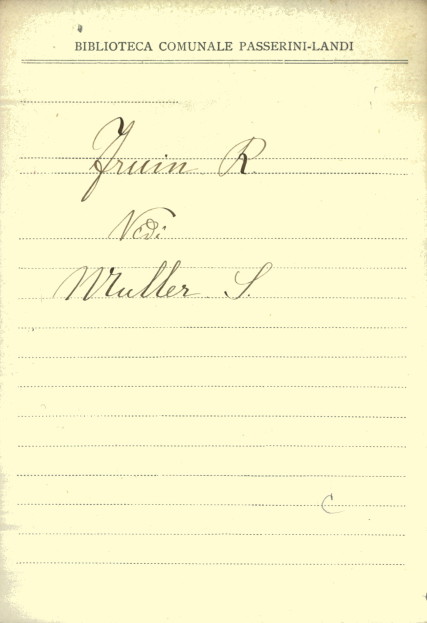 BIBLIOTECA COMUNALE PASSERINI-LANDI
Fruin R.
Vedi
Muller S.
C